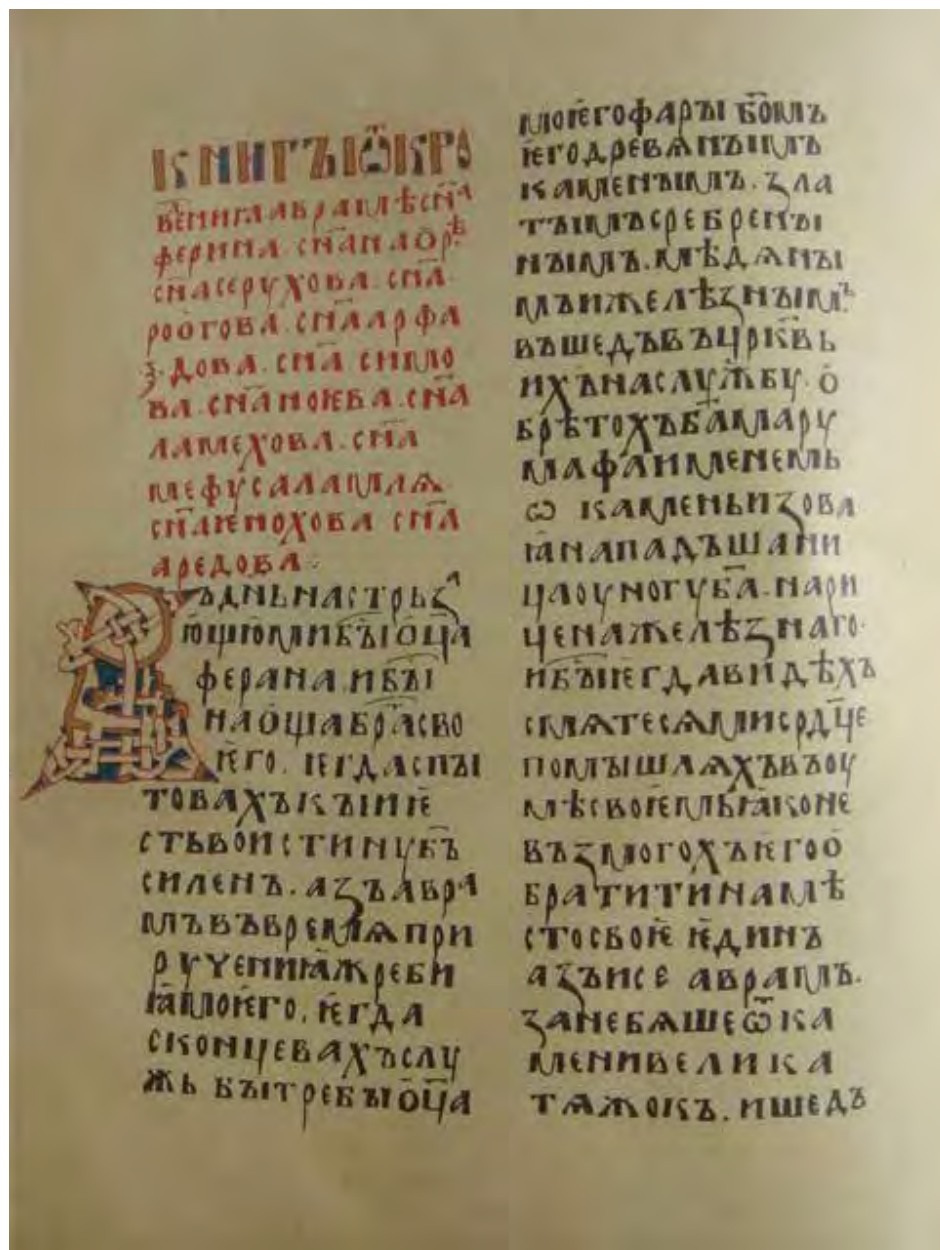 КНИГЪІѾКРО
ве҃ниꙗавраамлѣсн҃а
ферина.сн҃анаор.ѣ
сн҃асерухова.сн҃а
роогова.сн҃аарфа
ꙁ.дова.сн҃а симо
ва.сн҃аноѥва.сн҃а
ламехова.сн҃а
мефусаламлѧ.
сн҃аѥнохова сн҃а
аредова:
Въдн҃ьнастрьꙁа
ющюмиб҃ꙑоц҃а
ферана.иб҃ꙑ
наоц҃абрасво
ѥго. ѥгдаспꙑ
товахъкꙑиѥ
стьвоистинуб҃ъ
силенъ.аꙁъавра
мъвъвремѧпри
рүченшꙗжреби
ꙗмоѥго.ѥгда
сконцевахъслу
жь бꙑтребꙑоц҃а
моѥгофарꙑ б҃омъ
ѥгодревѧнꙑмъ
каменꙑмъ.ꙁла
тꙑмъсребренꙑ
нꙑмъ.мѣдѧнꙑ
мъижелѣꙁнꙑмъ.
въшедъвъцрк҃вь
ихънаслужбу.о
брѣтохъб҃амару
мафаименемь
ѡ каменьиꙁова
ꙗнападъшани
цаоуногуб҃а.нари
ценажелѣꙁнаго.
иб҃ꙑѥгдавидѣхъ
смѧтесѧмисрдц҃е
помꙑшлѧхъвъоу
мѣсвоѥмьꙗконе
въꙁмогохъѥгоо
братитинамѣ
стосвоѥ ѥдинъ
аꙁъисе аврамъ.
ꙁанебѧшеѿка
менивелика
тѧжокъ.ишедъ